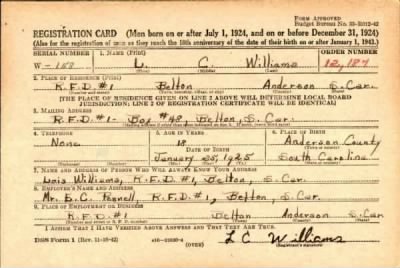 FORM APPROVED
Budget Bureau No. 33-R012-42
REGISTRATION CARD (Men born on or after July 1, 1924, and on or before December 31, 1924)
(Also for the registration of men as they reach the 18th anniversary of the date of their birth on or after January 1, 1943.)
SERIAL NUMBER 1. NAME (Print) ORDER NUMBER
W - 158 L. C. Williams 12,187
(First) (Middle) (Last)
2. PLACE OF RESIDENCE (Print)
R.F.D. #1 Belton Anderson S. Car.
[THE PLACE OF RESIDENCE GIVEN ON LINE 2 ABOVE WILL DETERMINE LOCAL BOARD
JURISDICTION; LINE 2 OF REGISTRATION CERTIFICATE WILL BE IDENTICAL]
3. MAILING ADDRESS
R.F.D. #1- Box #48, Belton, S. Car.
4. TELEPHONE 5. AGE IN YEARS 6. PLACE OF BIRTH
None 18 Anderson County
DATE OF BIRTH
January 25, 1925 South Carolina
7. NAME OF PERSON WHO WILL ALWAYS KNOW YOUR ADDRESS
Lois Williams, R.F.D. #1, Belton, S. Car.
8. EMPLOYER'S NAME AND ADDRESS
Mr. E.C. R.F.D. #1, Belton, S. Car.
9. PLACE OF EMPLOYMENT OR BUSINESS
R.F.D. #1 Belton Anderson S. Car
I AFFIRM THAT I HAVE VERIFIED ABOVE ANSWERS AND THAT THEY ARE TRUE.
DSS Form 1 (Rev. 11-16-42) (OVER) L C Williams
(Registrant's signature)